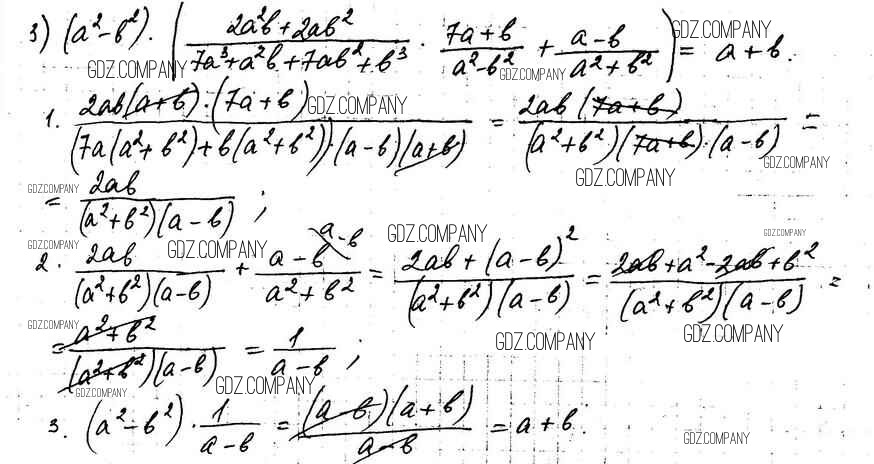 3) (a²-b²)·((2a²b+2ab²)/(7a³+a²b+7ab²+b³) · (7a+b)/(a²-b²) + (a-b)/(a²+b²)) = a+b.
GDZ.COMPANY GDZ.COMPANY GDZ.COMPANY
1. (2ab(a+b)·(7a+b))/((7a(a²+b²)+b(a²+b²))·(a-b)(a+b)) = (2ab(7a+b))/((a²+b²)(7a+b)·(a-b)) =
GDZ.COMPANY GDZ.COMPANY GDZ.COMPANY
= 2ab/((a²+b²)(a-b)) ;
GDZ.COMPANY
2. 2ab/((a²+b²)(a-b)) + (a-b)/(a²+b²) a-b = (2ab+(a-b)²)/((a²+b²)(a-b)) = (2ab+a²-2ab+b²)/((a²+b²)(a-b)) =
GDZ.COMPANY GDZ.COMPANY GDZ.COMPANY GDZ.COMPANY
= (a²+b²)/((a²+b²)(a-b)) = 1/(a-b) ;
GDZ.COMPANY GDZ.COMPANY GDZ.COMPANY
GDZ.COMPANY GDZ.COMPANY
3. (a²-b²)·1/(a-b) = ((a-b)(a+b))/(a-b) = a+b.
GDZ.COMPANY